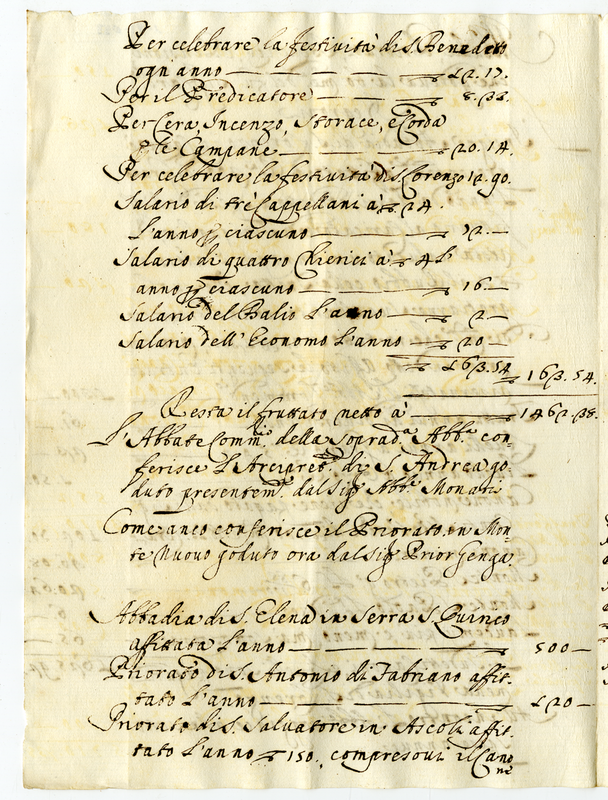 Per celebrare la festività di S. Benedetto
ogni anno — — — — 12. 17.
Per il Predicatore — — 8. 33.
Per Cera, Incenzo, Storace, e Corda
p le Campane — — 20. 14.
Per celebrare la festività di S. Lorenzo 12. 90.
Salario di trè Cappellani à 24.
l'anno p ciascuno — — 72. —
Salario di quattro Chierici à 4 l'
anno p ciascuno — — 16. —
Salario del Balio l'anno — 2. —
Salario dell'Economo l'anno — 20 —
163. 54 163. 54.
Resta il fruttato netto à — 1462. 38.
L'Abbate Comm.e della Soprad.a Abb.a con-
ferisce l'Arcipret. di S. Andrea go-
duto presentem. dal Sig. Abb.e Monati
Come anco conferisce il Priorato in Mon-
te Nuovo goduto ora dal Sig. Prior Genga.
Abbadia di S. Elena in Serra S. Quirico
affittata l'anno — — — 500 —
Priorato di S. Antonio di Fabriano affit-
tato l'anno — — — 120 —
Priorato di S. Salvatore in Ascoli affit-
tato l'anno 150. compresovi il Cano
ne